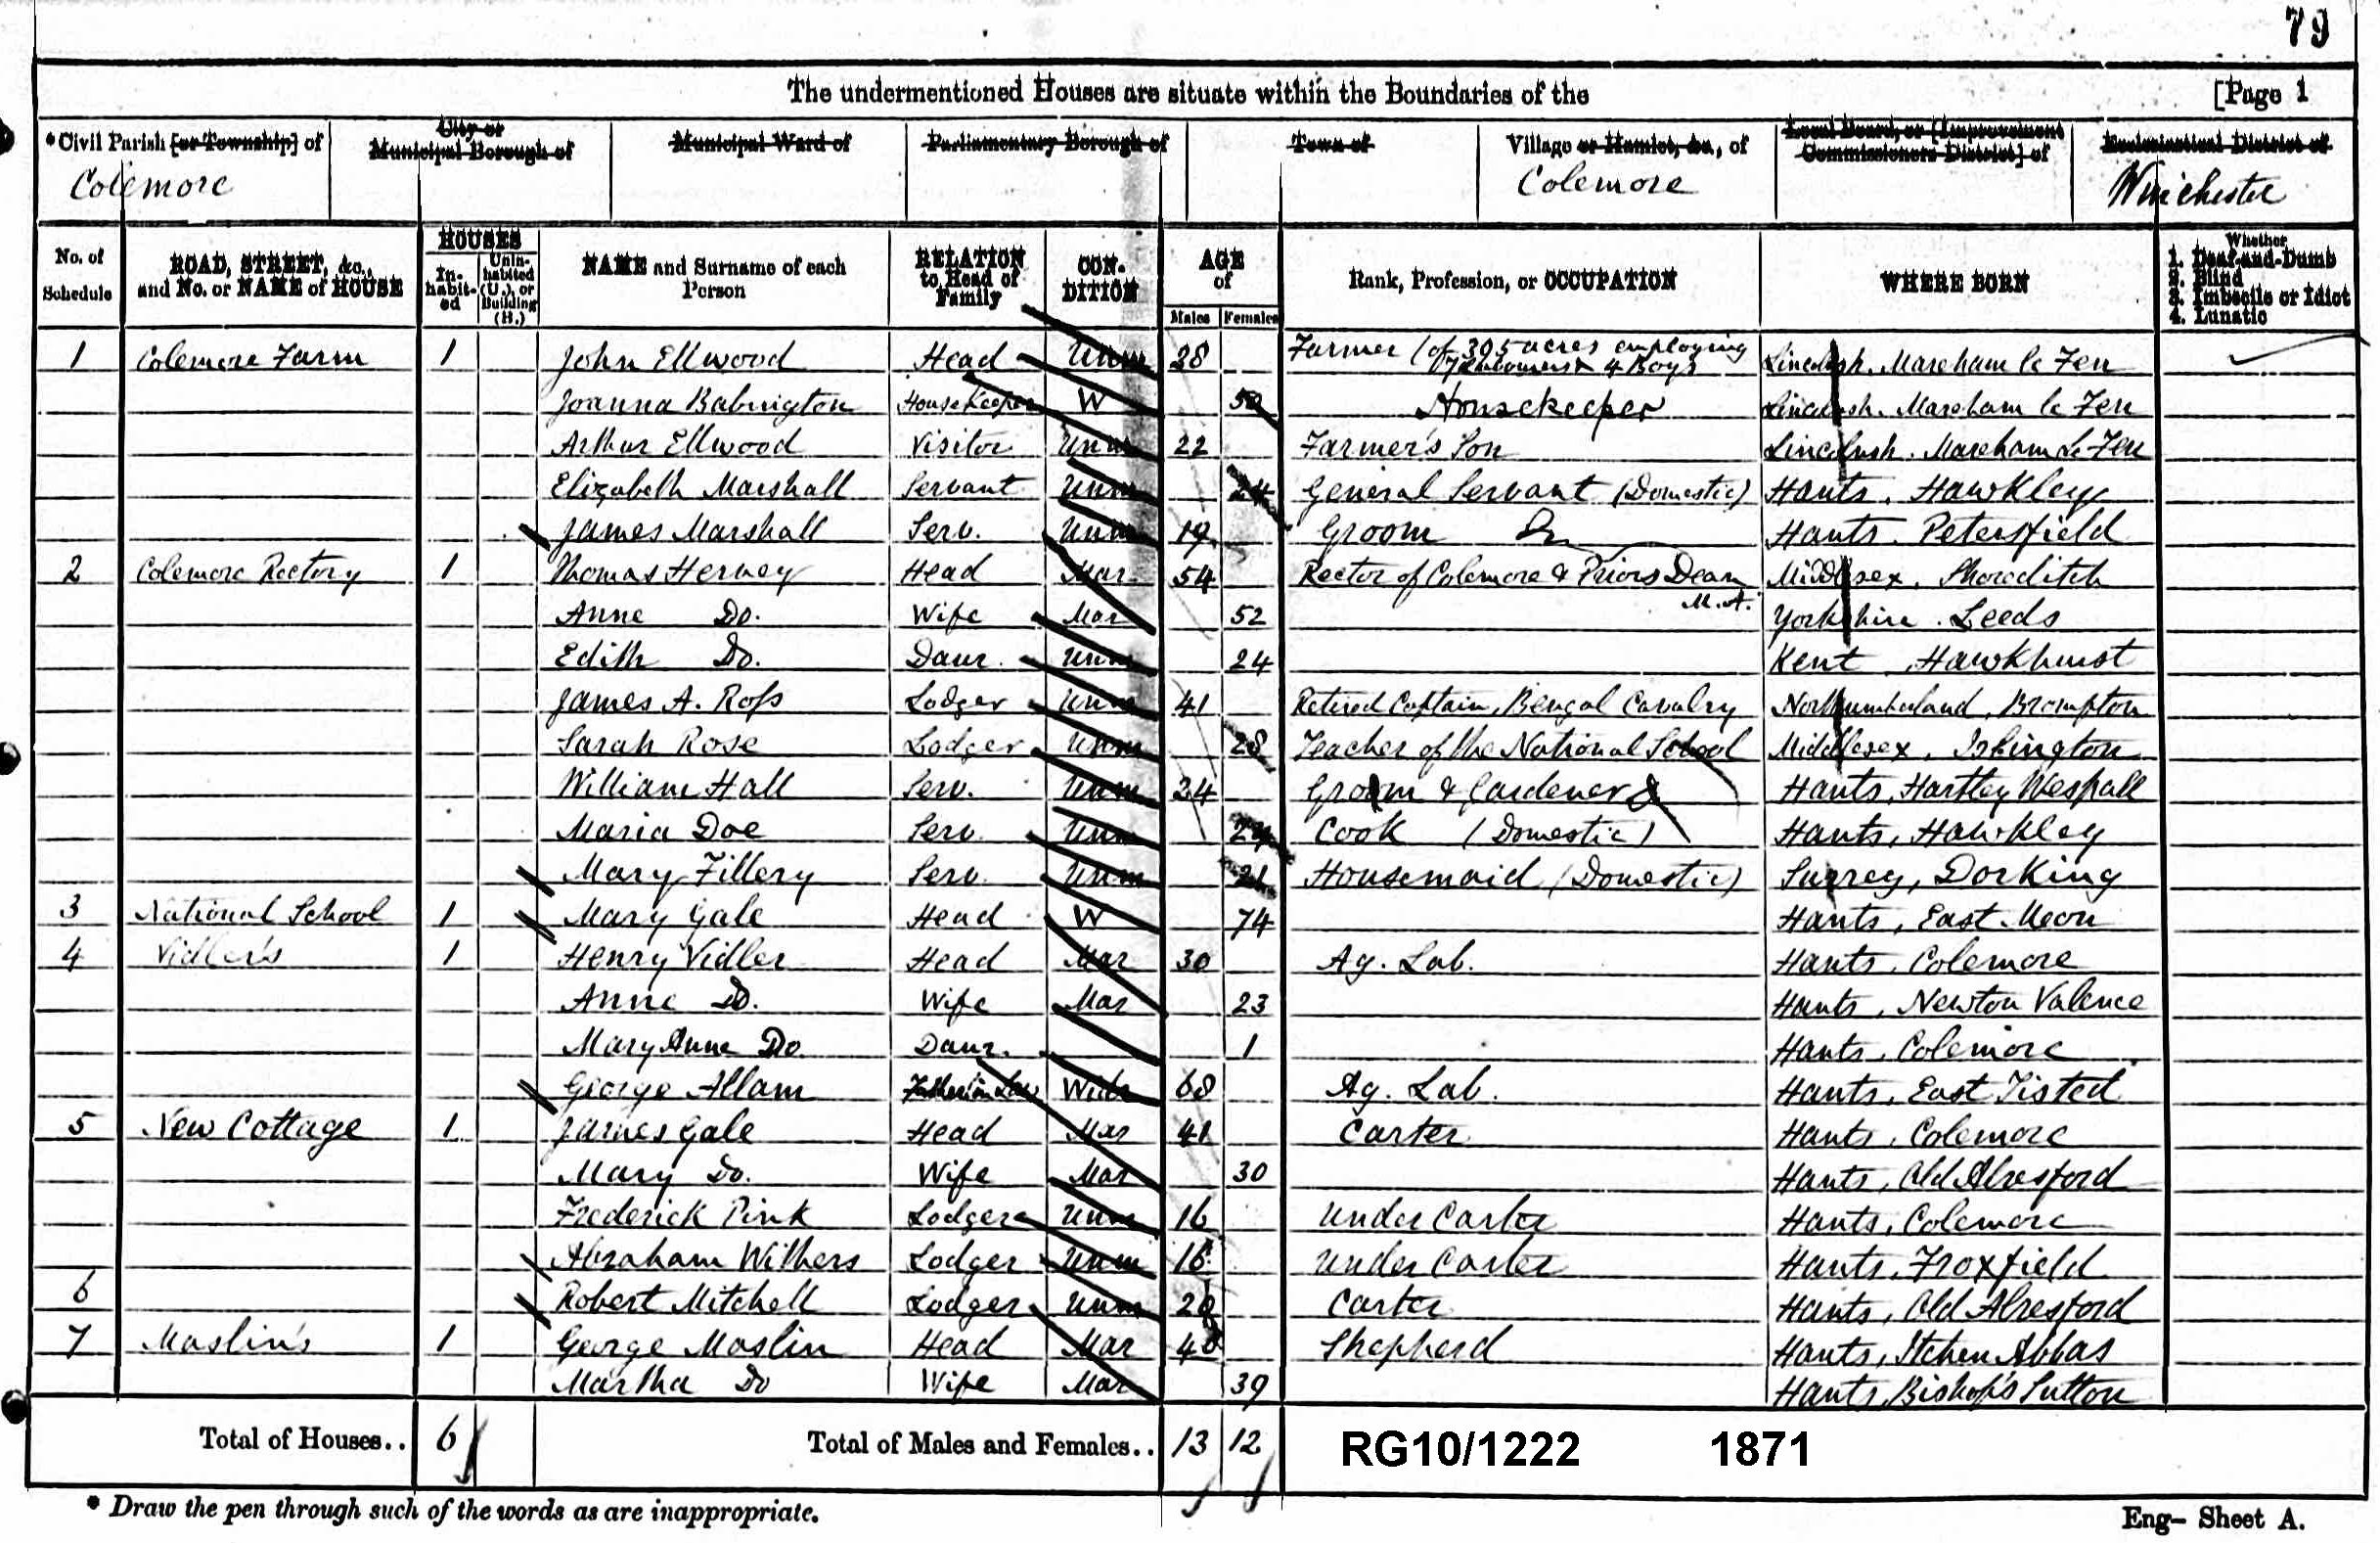 79
The undermentioned Houses are situate within the Boundaries of the [Page 1
* Civil Parish [or Township] of City or Municipal Borough of Municipal Ward of Parliamentary Borough of Town of Village or Hamlet, &c., of Local Board, or [Improvement Commissioners District] of Ecclesiastical District of
Colemore Colemore Winchester
No. of Schedule ROAD, STREET, &c., and No. or NAME of HOUSE HOUSES In-habit-ed Unin-habited (U.), or Building (B.) NAME and Surname of each Person RELATION to Head of Family CON-DITION AGE of Males Females Rank, Profession, or OCCUPATION WHERE BORN Whether 1. Deaf-and-Dumb 2. Blind 3. Imbecile or Idiot 4. Lunatic
1 Colemore Farm 1 John Ellwood Head Unm 28 Farmer (of 305 acres employing 7 Labourers & 4 Boys Lincolnsh. Mareham le Fen
Joanna Babington HouseKeeper W 50 Housekeeper Lincolnsh. Mareham le Fen
Arthur Ellwood Visitor Unm 22 Farmer's Son Lincolnsh. Mareham Le Fen
Elizabeth Marshall Servant Unm 24 General Servant (Domestic) Hants, Hawkley
James Marshall Serv. Unm 19 Groom Hants. Petersfield
2 Colemore Rectory 1 Thomas Hervey Head Mar 54 Rector of Colemore & Priors Dean M.A. Middlesex, Shoreditch
Anne Do. Wife Mar 52 Yorkshire. Leeds
Edith Do. Daur. Unm 24 Kent, Hawkhurst
James A. Ross Lodger Unm 41 Retired Captain, Bengal Cavalry Northumberland, Brompton
Sarah Rose Lodger Unm 28 Teacher of the National School Middlesex, Islington
William Hall Serv. Unm 24 Groom & Gardener Hants, Hartley Wespall
Maria Doe Serv. Unm Cook (Domestic) Hants, Hawkley
Mary Fillery Serv. Unm 21 Housemaid (Domestic) Surrey, Dorking
3 National School 1 Mary Gale Head W 74 Hants, East Meon
4 Vidler's 1 Henry Vidler Head Mar 30 Ag. Lab. Hants, Colemore
Anne Do. Wife Mar 23 Hants, Newton Valence
Mary Anne Do. Daur. 1 Hants, Colemore
George Allam Father in Law Widr 68 Ag. Lab. Hants, East Tisted
5 New Cottage 1 James Gale Head Mar 41 Carter Hants, Colemore
Mary Do. Wife Mar 30 Hants, Old Alresford
Frederick Pink Lodger Unm 16 Under Carter Hants, Colemore
Abraham Withers Lodger Unm 16 Under Carter Hants, Froxfield
6 Robert Mitchell Lodger Unm 20 Carter Hants, Old Alresford
7 Maslin's 1 George Maslin Head Mar 48 Shepherd Hants, Itchen Abbas
Martha Do Wife Mar 39 Hants, Bishop's Sutton
Total of Houses.. 6 Total of Males and Females.. 13 12 RG10/1222 1871
* Draw the pen through such of the words as are inappropriate. Eng- Sheet A.